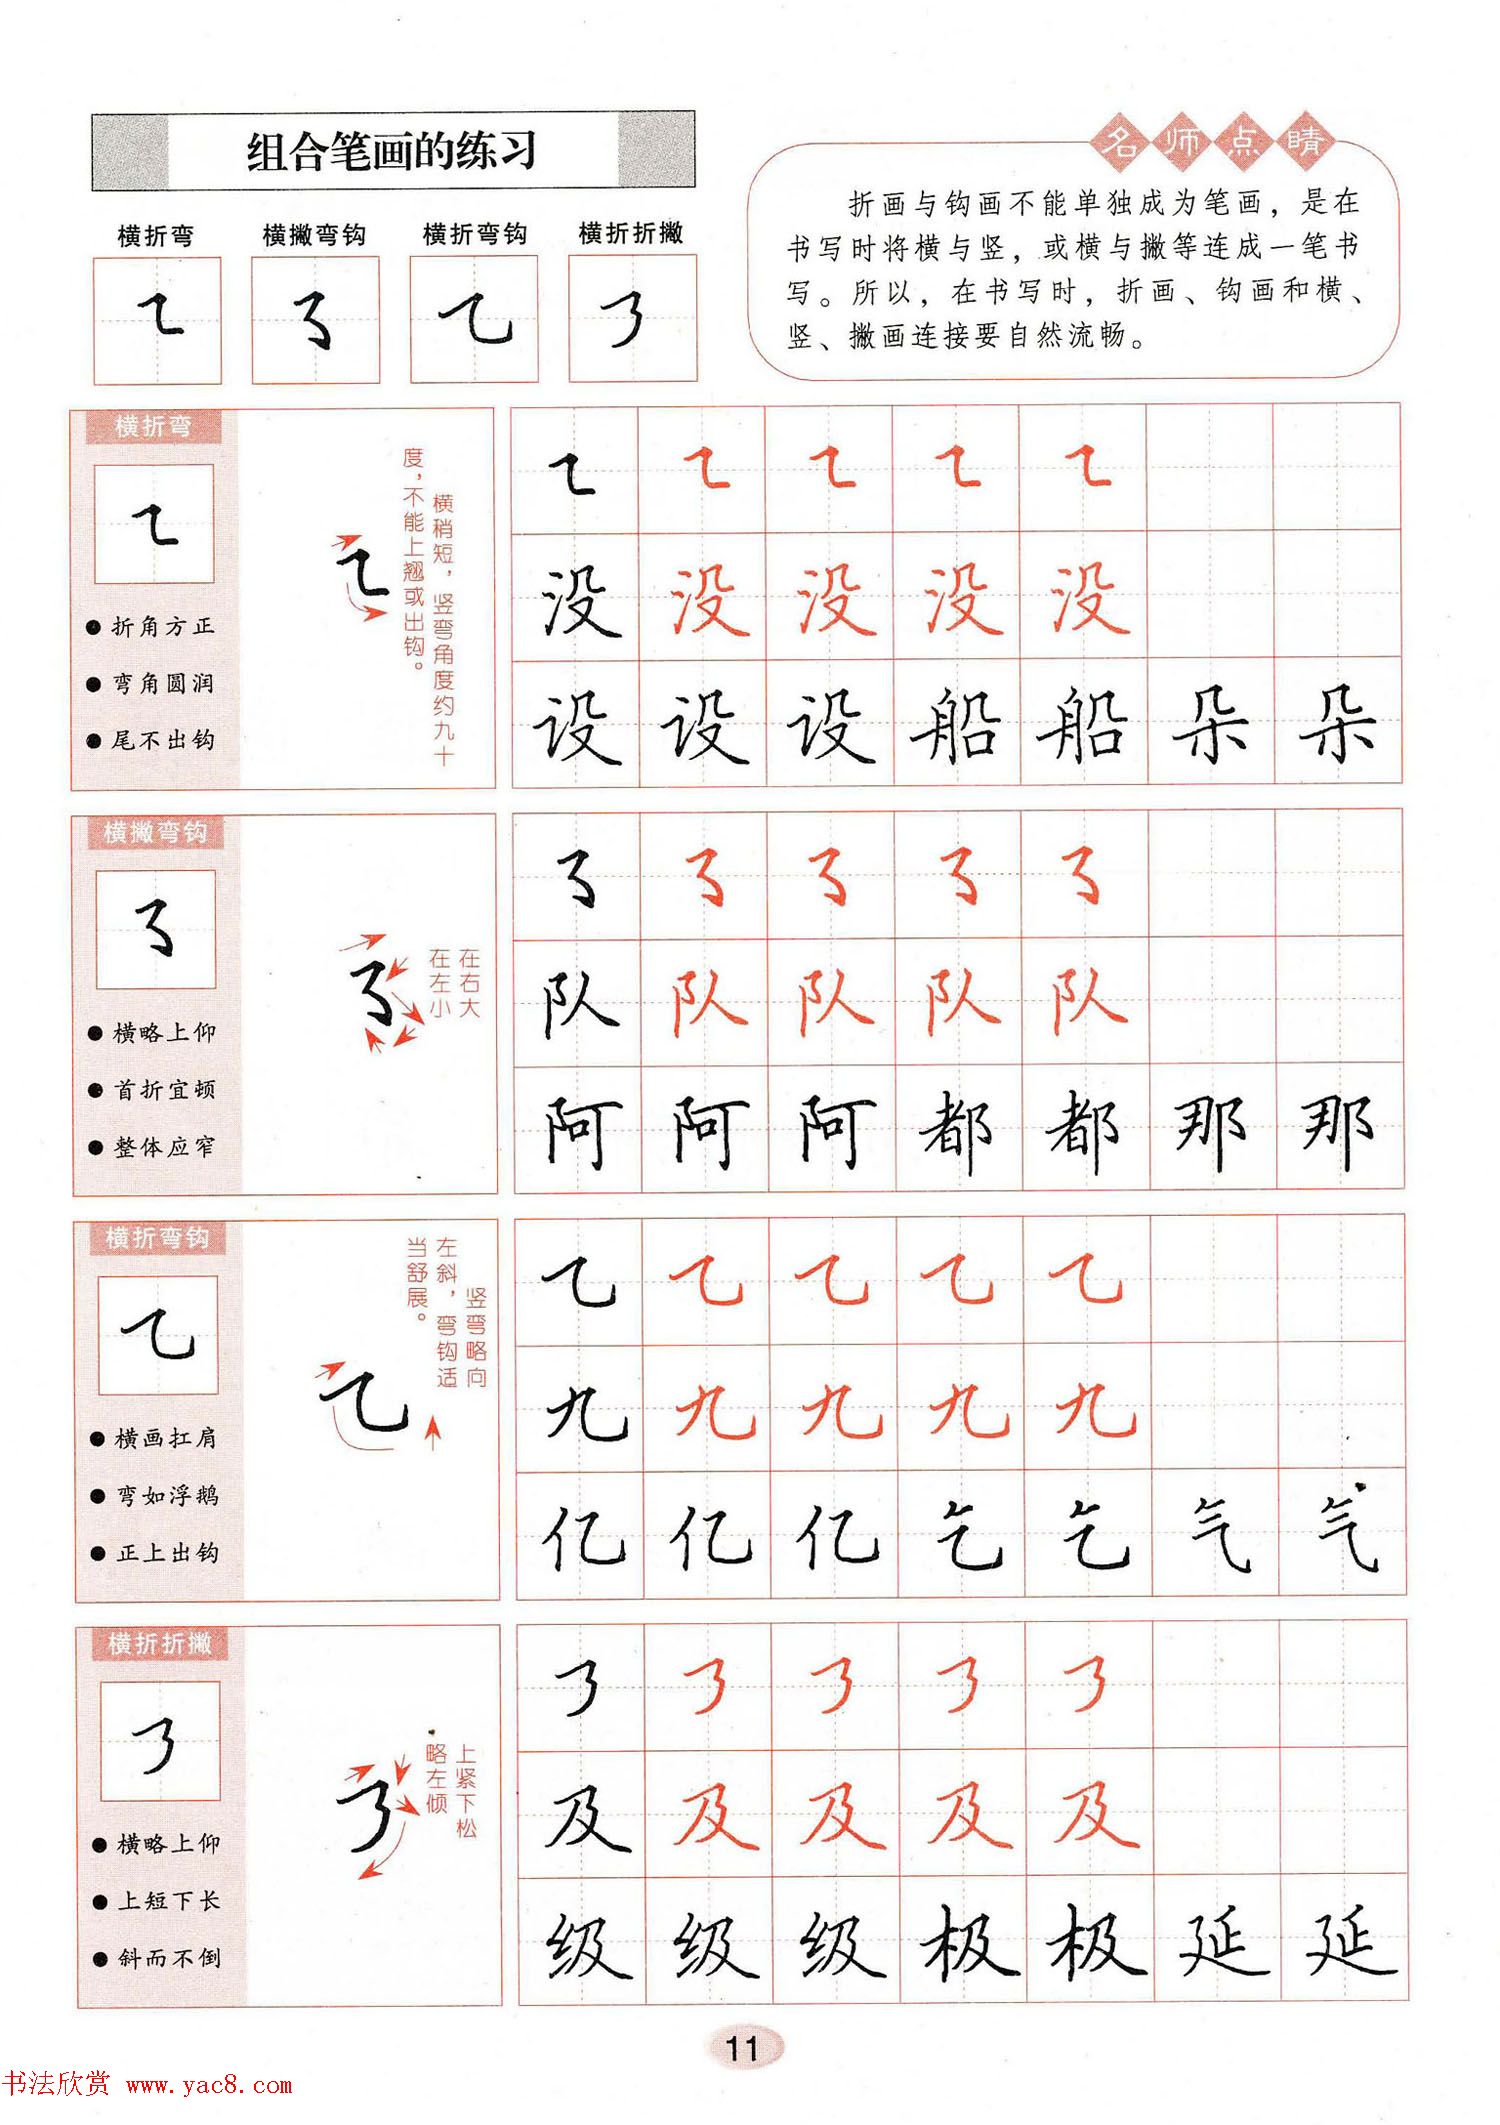 组合笔画的练习
横折弯 横撇弯钩 横折弯钩 横折折撇
㇍ ㇌ 乙 ㇋
名师点睛
折画与钩画不能单独成为笔画，是在
书写时将横与竖，或横与撇等连成一笔书
写。所以，在书写时，折画、钩画和横、
竖、撇画连接要自然流畅。
横折弯
㇍
折角方正
弯角圆润
尾不出钩
横稍短，竖弯角度约九十
度，不能上翘或出钩。
㇍ ㇍ ㇍ ㇍ ㇍
没 没 没 没 没
设 设 设 船 船 朵 朵
横撇弯钩
㇌
横略上仰
首折宜顿
整体应窄
在右大
在左小
㇌ ㇌ ㇌ ㇌ ㇌
队 队 队 队 队
阿 阿 阿 都 都 那 那
横折弯钩
乙
横画扛肩
弯如浮鹅
正上出钩
竖弯略向
左斜，弯钩适
当舒展。
乙 乙 乙 乙 乙
九 九 九 九 九
亿 亿 亿 乞 乞 气 气
横折折撇
㇋
横略上仰
上短下长
斜而不倒
上紧下松
略左倾
㇋ ㇋ ㇋ ㇋ ㇋
及 及 及 及 及
级 级 级 极 极 延 延
11
书法欣赏 www.yac8.com